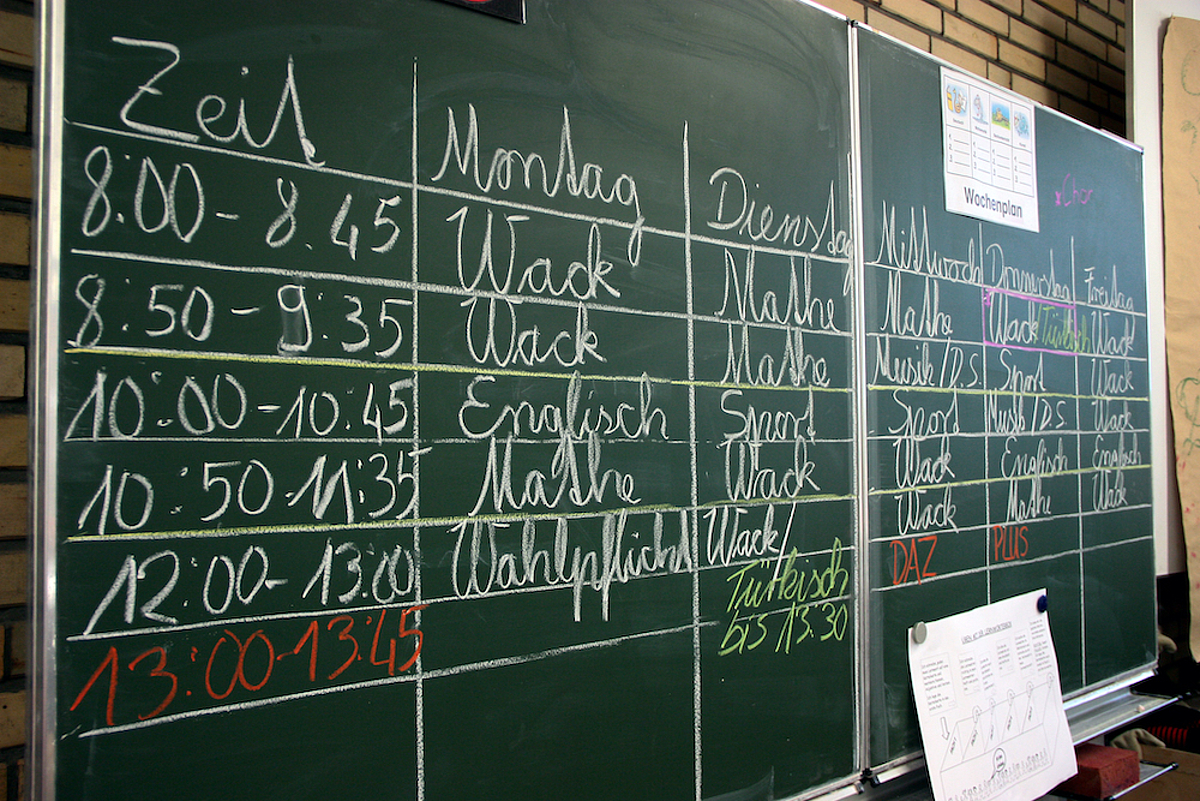 Wochenplan
xChor
Zeit Montag Dienstag Mittwoch Donnerstag Freitag
8:00 - 8.45 Wack Mathe Mathe Wack Türkisch Wack
8:50 - 9:35 Wack Mathe Musik/D.S. Sport Wack
10:00 - 10:45 Englisch Sport Sport Musik/D.S. Wack
10:50 - 11:35 Mathe Wack Wack Englisch Englisch
12:00 - 13:00 Wahlpflicht Wack/ Wack Mathe Wack
Türkisch
bis 13.30
13:00 - 13:45 DAZ PLUS